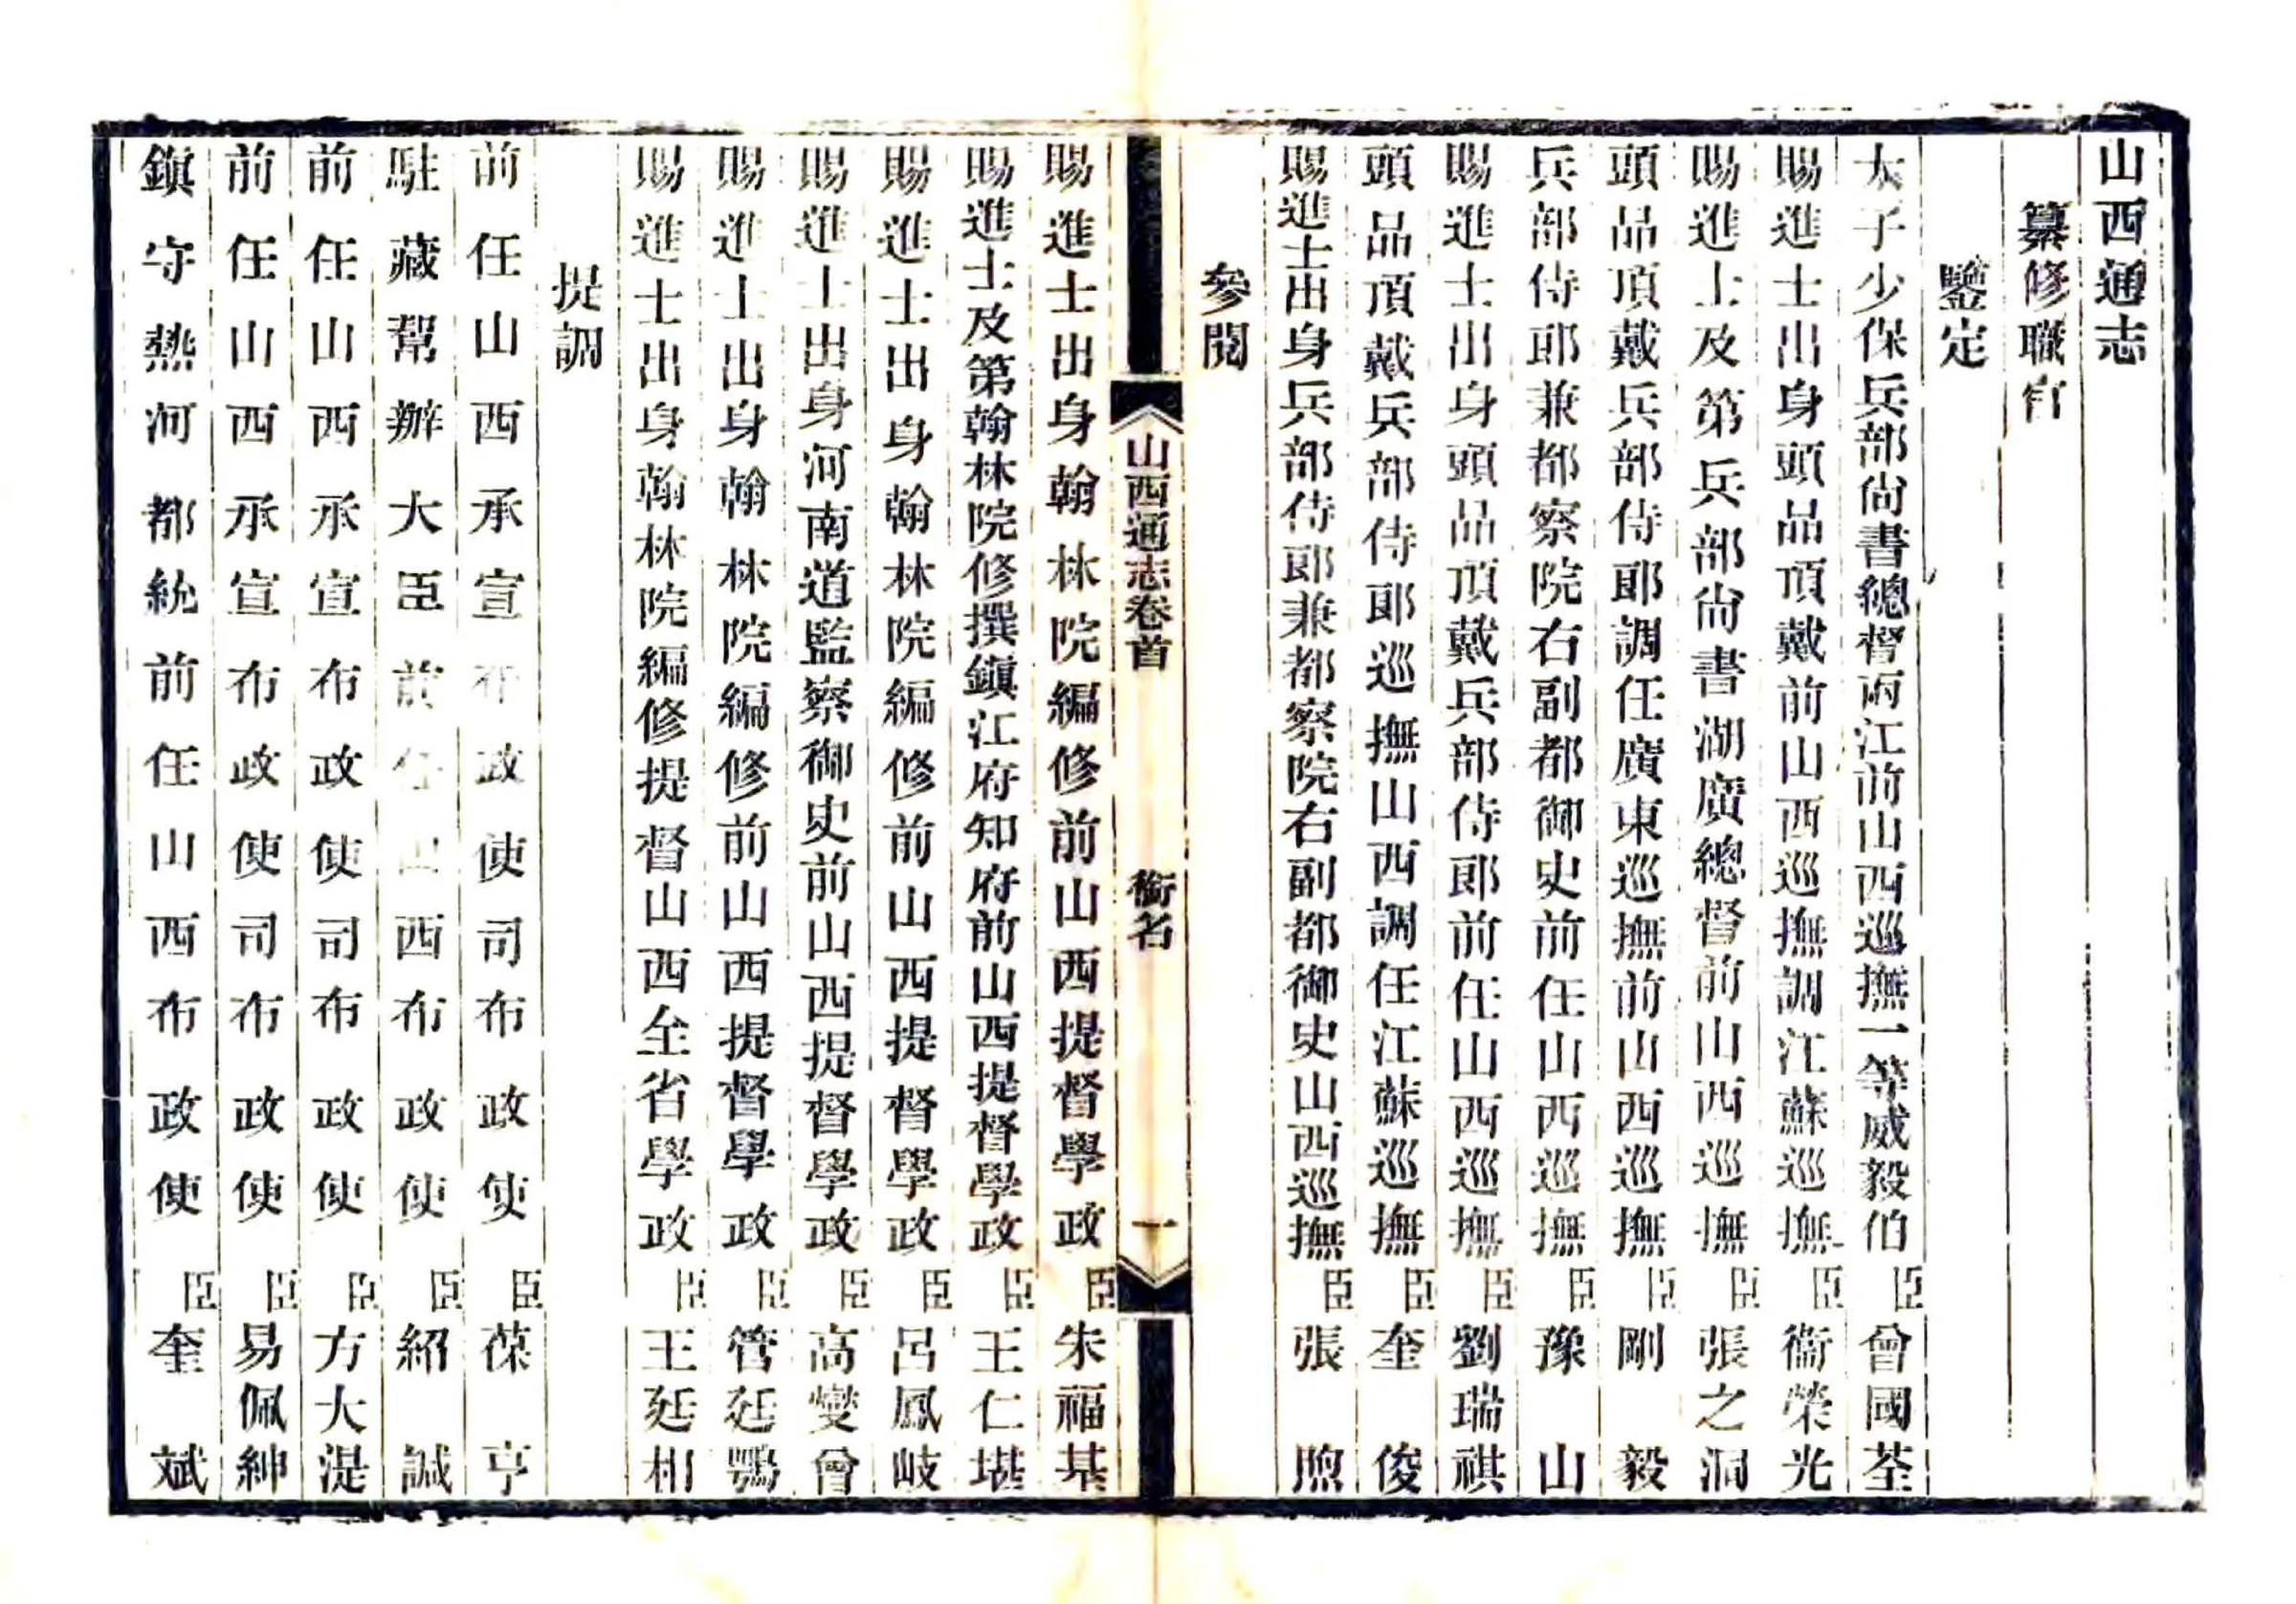 山西通志
纂修職官
鑒定
太子少保兵部尚書總督兩江前山西巡撫一等威毅伯臣曾國荃
賜進士出身頭品頂戴前山西巡撫調江蘇巡撫臣衞榮光
賜進士及第兵部尚書湖廣總督前山西巡撫臣張之洞
頭品頂戴兵部侍郎調任廣東巡撫前山西巡撫臣剛毅
兵部侍郎兼都察院右副都御史前任山西巡撫臣豫山
賜進士出身頭品頂戴兵部侍郎前任山西巡撫臣劉瑞祺
頭品頂戴兵部侍郎巡撫山西調任江蘇巡撫臣奎俊
賜進士出身兵部侍郎兼都察院右副都御史山西巡撫臣張煦
參閱
山西通志卷首 銜名 一
賜進士出身翰林院編修前山西提督學政臣朱福基
賜進士及第翰林院修撰鎭江府知府前山西提督學政臣王仁堪
賜進士出身翰林院編修前山西提督學政臣呂鳳岐
賜進士出身河南道監察御史前山西提督學政臣高燮曾
賜進士出身翰林院編修前山西提督學政臣管廷鶚
賜進士出身翰林院編修提督山西全省學政臣王廷相
提調
前任山西承宣布政使司布政使臣葆亨
駐藏幫辦大臣前任山西布政使臣紹諴
前任山西承宣布政使司布政使臣方大湜
前任山西承宣布政使司布政使臣易佩紳
鎭守熱河都統前任山西布政使臣奎斌